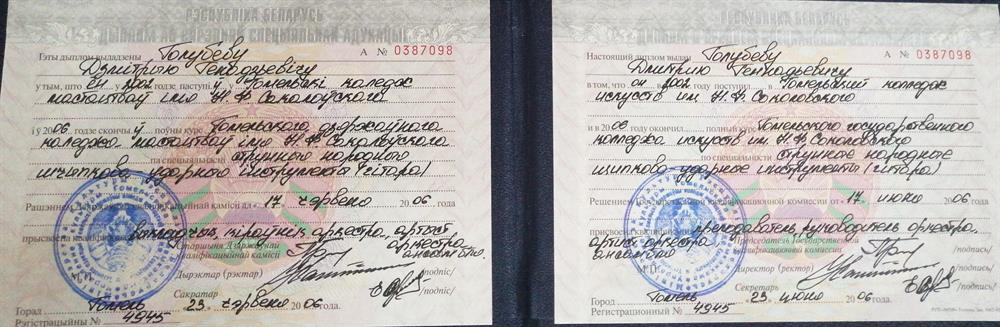 РЭСПУБЛІКА БЕЛАРУСЬ
ДЫПЛОМ АБ СЯРЭДНЯЙ СПЕЦЫЯЛЬНАЙ АДУКАЦЫІ
Гэты дыплом выдадзены Голубеву А № 0387098
Дзмітрыю Генадзьевічу
у тым, што ён у 2002 годзе паступіў у Гомельскі каледж
мастацтваў імя Н.Ф. Сокалоўскага
і ў 2006 годзе скончыў поўны курс Гомельскага дзяржаўнага
каледжа мастацтваў імя Н.Ф. Сокалоўскага
па спецыяльнасці струннага народнага
шчыпкова-ударнага інструменты (гітара)
Рашэннем Дзяржаўнай кваліфікацыйнай камісіі ад 17 чэрвеня 2006 года
прысвоена кваліфікацыя выкладчык, кіраўнік аркестра, артыст
аркестра,
ансамбля
Старшыня Дзяржаўнай
кваліфікацыйнай камісіі /подпіс/
Дырэктар (рэктар) /подпіс/
М.П.
Сакратар /подпіс/
Горад Гомель 23 чэрвеня 2006 года.
Рэгістрацыйны № 4945
РЕСПУБЛИКА БЕЛАРУСЬ
ДИПЛОМ О СРЕДНЕМ СПЕЦИАЛЬНОМ ОБРАЗОВАНИИ
Настоящий диплом выдан Голубеву А № 0387098
Дмитрию Геннадьевичу
в том, что он в 2002 году поступил в Гомельский колледж
искусств им. Н.Ф. Соколовского
и в 2006 году окончил полный курс Гомельского государственного
колледжа искусств им. Н.Ф. Соколовского
по специальности струнные народные
щипково-ударные инструменты (гитара)
Решением Государственной квалификационной комиссии от 17 июня 2006 года
присвоена квалификация преподаватель, руководитель оркестра,
артист оркестра,
ансамбля
Председатель Государственной
квалификационной комиссии /подпись/
Директор (ректор) /подпись/
М.П.
Секретарь /подпись/
Город Гомель 23 июня 2006 года.
Регистрационный № 4945